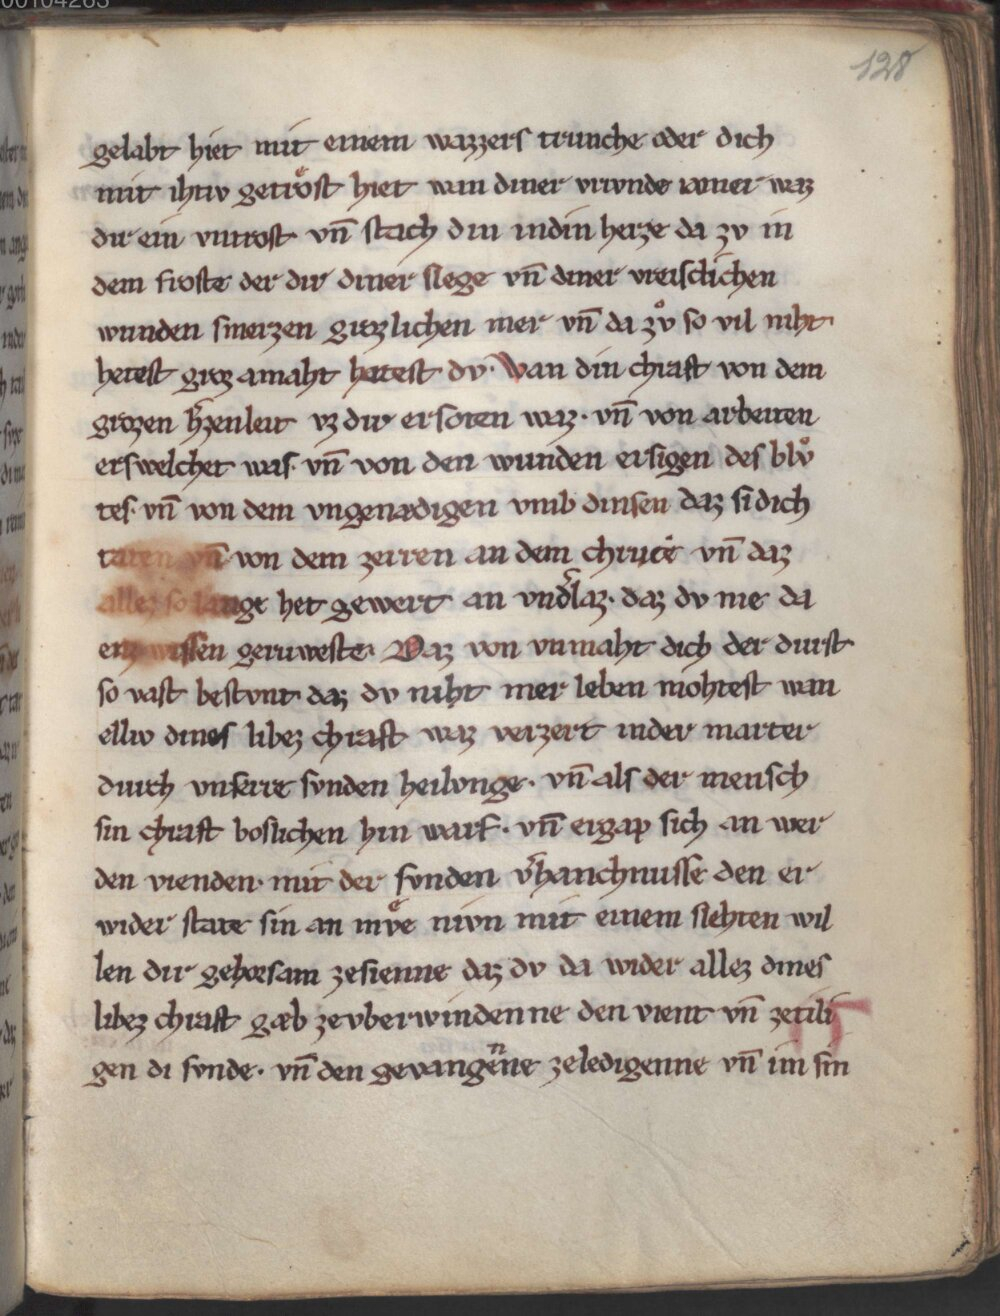 00104263
128
gelabt hiet mit einem wazzers trunche oder dich
mit ihtiv getrost hiet wan diner vrivnde iamer waz
dir ein vntrost vn̄ stach din indin herze da zv in
dem froste der dir diner slege vn̄ diner vreislichen
wunden smerzen grozlichen mer vn̄ da zvͦ so vil niht
hetest groz amaht hetest dv. Wan din chraft von dem
grozen hzenleit vz dir ersoten waz. vn̄ von arbeiten
erswelchet was. vn̄ von den wunden ersigen des blvͦ
tes. vn̄ von dem vngenædigen vmb dinsen daz si dich
taten vn̄ von dem zerren an dem chruce vn̄ daz
allez so lange het gewert an vnd̓laz. daz dv nie da
geruweste. Daz von vnmaht dich der durst
so vast bestvnt daz dv niht mer leben mohtest wan
elliv dines libez chraft waz verzert inder marter
durch vnserre svnden heilvnge. vn̄ als der mensch
sin chraft boslichen hin warf. vn̄ ergap sich an wer
den vienden. mit der svnden v̓hanchnusse den er
wider state sin an mvͤe nivn mit einem slehten wil
len dir gehorsam zesienne daz dv da wider allez dines
libez chraft gæb zevberwindenne den vient vn̄ zetili
gen di svnde. vn̄ den gevangenne zeledigenne vn̄ im sin